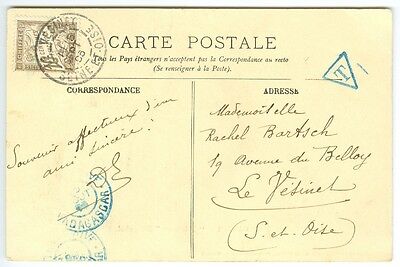 CARTE POSTALE
Tous les Pays étrangers n'acceptent pas la Correspondance au recto
(Se renseigner à la Poste).
CORRESPONDANCE
ADRESSE
T
Souvenir affectueux d'un
ami sincère!
Mademoiselle
Rachel Bartsch
19 Avenue du Belloy
Le Vésinet
(S. et Oise)
LE VESINET
MADAGASCAR